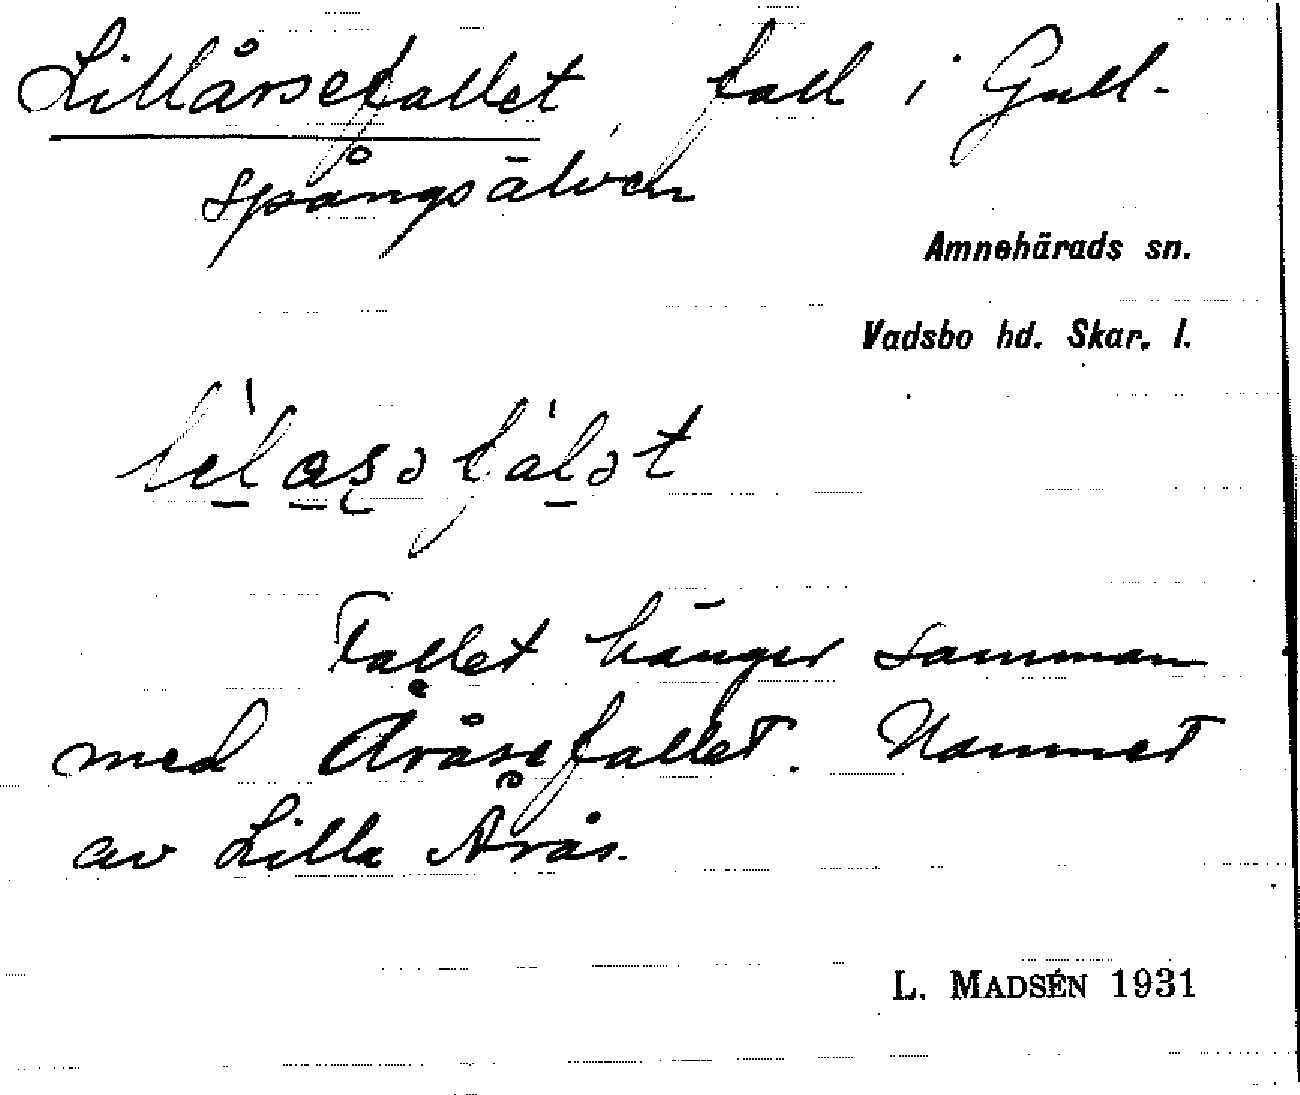 Lillårsefallet, fall i Gull-
spångsälven
Amnehärads sn.
Vadsbo hd. Skar. l.
Fallet hänger samman
med Åråsefallet. Namnet
av Lilla Årås.
L. MADSÉN 1931